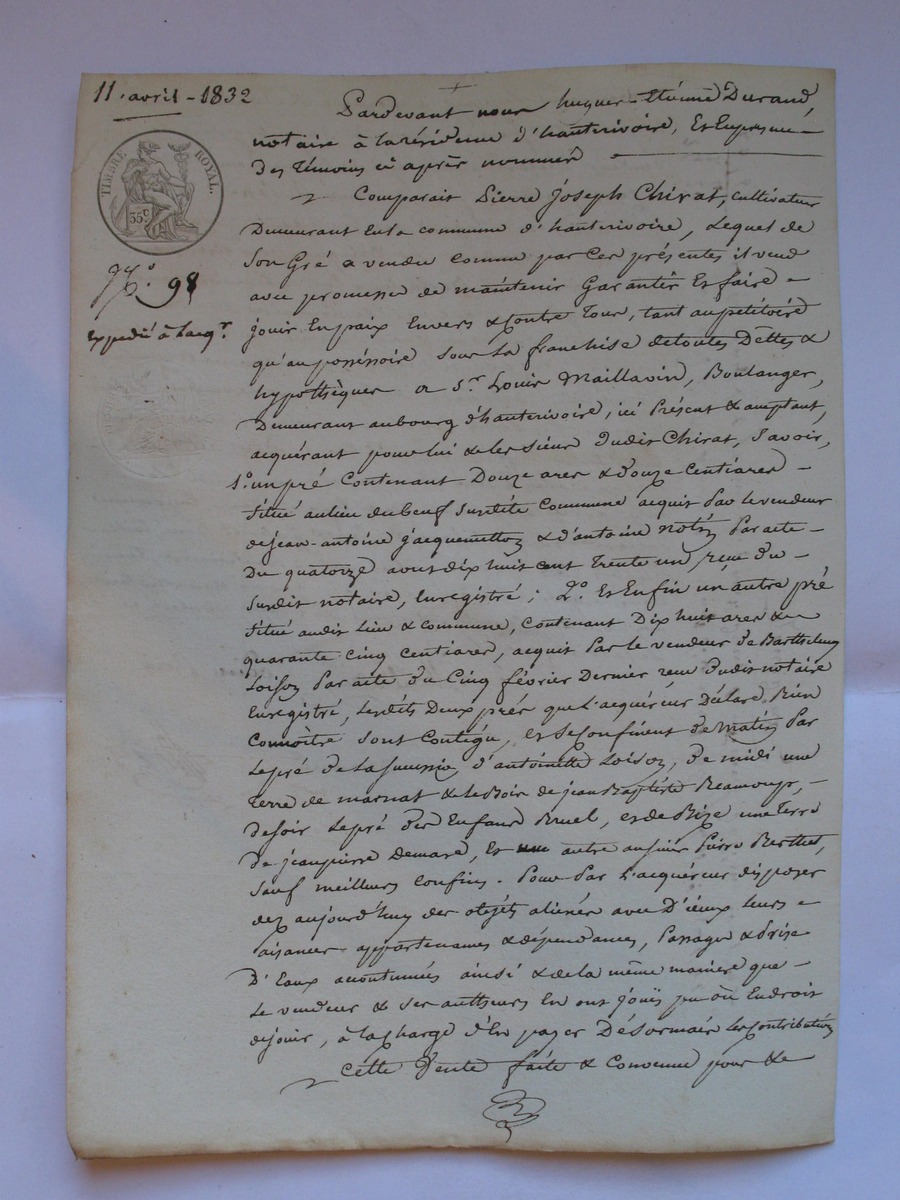 11. avril - 1832
TIMBRE ROYAL.
35 c
N.° 98
expédié à l'acq.r
Pardevant nous hugues-Etienne Durand,
notaire à la résidence d'hauterivoire, Et En présence
des témoins ci après nommés
Comparait Pierre Joseph Chirat, cultivateur
Demeurant En la commune d'hauterivoire, Lequel de
Son Gré a vendu comme par Ces présentes il vend
avec promesse de maintenir Garantir Et faire
jouir En paix Envers & Contre Tous, tant au pétitoire
qu'au possessoire sous la franchise de toutes Dettes &
hypothèques a S.r Louis Maillavin, Boulanger,
Demeurant au bourg d'hauterivoire, ici Présent & acceptant,
acquérant pour lui & les siens dudit Chirat, Savoir,
1.° un pré Contenant Douze ares & douze Centiares
Situé au lieu du beuf susdite Commune acquit Par le vendeur
de jean-antoine jacquemetton & d'antoine Par acte
Du quatorze aout dix huit cent Trente un reçu du
susdit notaire, Enregistré; 2.° Et Enfin un autre pré
situé audit Lieu & commune, Contenant Dix huit ares &
quarante Cinq Centiares, acquit Par le vendeur De Barthelemy
Loison Par acte du Cinq février Dernier reçu dudit notaire
Enregistré, Lesdits Deux prés que L'acquéreur Déclare Bien
Connoitre sont Contigu, et Se Confinent De matin Par
Le pré De d'antoinette Loison, De midi une
terre de marnat & Le Bois de jean Baptiste
De soir Le pré des Enfans Bruel, et de Bize une Terre
De jean pierre Demare, Et autre au sieur Pierre Berthet,
Sauf meilleurs Confins. Pour Par L'acquéreur disposer
dez aujourd'huy des objets aliénés avec D'iceux leurs
aisances appartenances & dépendances, Passages & Prise
D'Eaux accoutumées ainsi & de la même maniere que
Le vendeur & ses autheurs En ont jouis pu ou En droit
de jouir, à la Charge d'En payer Désormais Les Contributions
Cette Vente faite & Convenue pour &